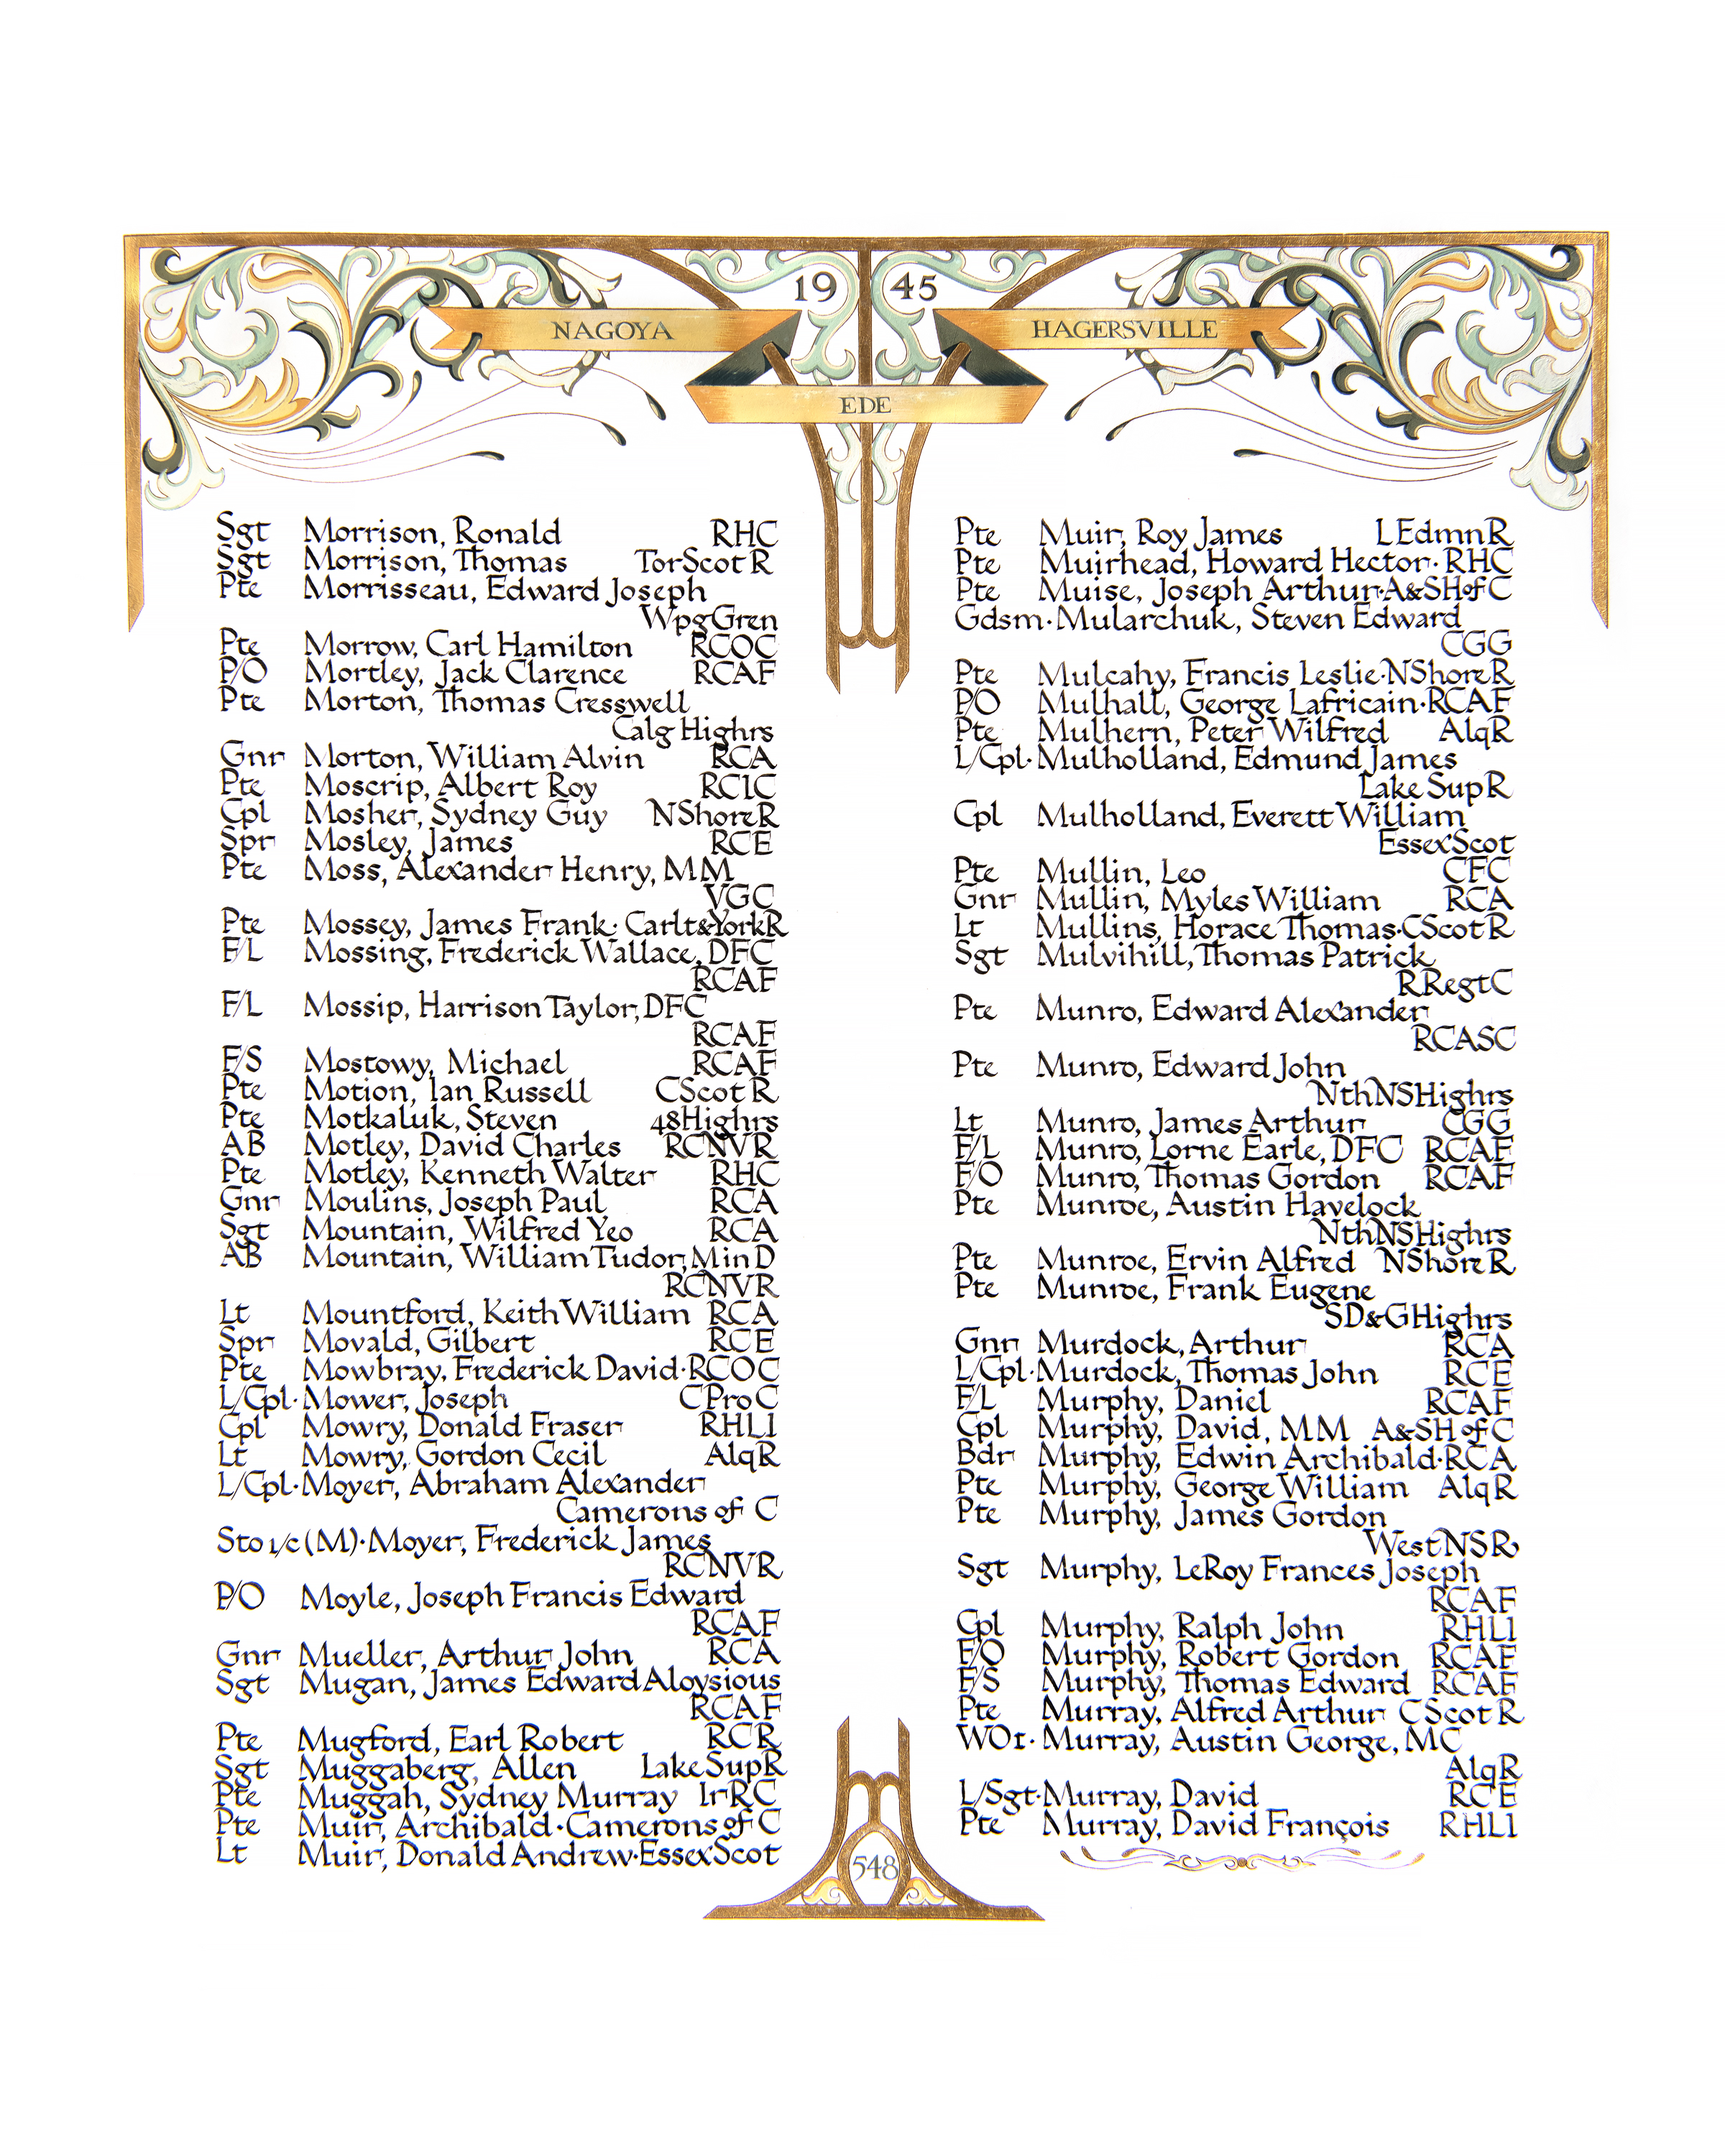 19 45
NAGOYA
HAGERSVILLE
EDE
Sgt Morrison, Ronald RHC
Sgt Morrison, Thomas TorScotR
Pte Morrisseau, Edward Joseph
WpgGren
Pte Morrow, Carl Hamilton RCOC
P/O Mortley, Jack Clarence RCAF
Pte Morton, Thomas Cresswell
Calg Highrs
Gnr Morton, William Alvin RCA
Pte Moscrip, Albert Roy RCIC
Cpl Mosher, Sydney Guy NShoreR
Spr Mosley, James RCE
Pte Moss, Alexander Henry, MM
VGC
Pte Mossey, James Frank·Carlt&YorkR
F/L Mossing, Frederick Wallace, DFC
RCAF
F/L Mossip, Harrison Taylor, DFC
RCAF
F/S Mostowy, Michael RCAF
Pte Motion, Ian Russell CScotR
Pte Motkaluk, Steven 48Highrs
AB Motley, David Charles RCNVR
Pte Motley, Kenneth Walter RHC
Gnr Moulins, Joseph Paul RCA
Sgt Mountain, Wilfred Yeo RCA
AB Mountain, William Tudor, Min D
RCNVR
Lt Mountford, Keith William RCA
Spr Movald, Gilbert RCE
Pte Mowbray, Frederick David·RCOC
L/Cpl·Mower, Joseph CProC
Cpl Mowry, Donald Fraser RHLI
Lt Mowry, Gordon Cecil AlqR
L/Cpl·Moyer, Abraham Alexander
Camerons of C
Sto 1/c (M)·Moyer, Frederick James
RCNVR
P/O Moyle, Joseph Francis Edward
RCAF
Gnr Mueller, Arthur John RCA
Sgt Mugan, James Edward Aloysious
RCAF
Pte Mugford, Earl Robert RCR
Sgt Muggaberg, Allen LakeSupR
Pte Muggah, Sydney Murray IrRC
Pte Muir, Archibald·Camerons of C
Lt Muir, Donald Andrew·EssexScot
Pte Muir, Roy James LEdmnR
Pte Muirhead, Howard Hector·RHC
Pte Muise, Joseph Arthur·A&SHofC
Gdsm·Mularchuk, Steven Edward
CGG
Pte Mulcahy, Francis Leslie·NShoreR
P/O Mulhall, George Lafricain·RCAF
Pte Mulhern, Peter Wilfred AlqR
L/Cpl·Mulholland, Edmund James
Lake SupR
Cpl Mulholland, Everett William
EssexScot
Pte Mullin, Leo CFC
Gnr Mullin, Myles William RCA
Lt Mullins, Horace Thomas·CScotR
Sgt Mulvihill, Thomas Patrick
RRegtC
Pte Munro, Edward Alexander
RCASC
Pte Munro, Edward John
NthNSHighrs
Lt Munro, James Arthur CGG
F/L Munro, Lorne Earle, DFC RCAF
F/O Munro, Thomas Gordon RCAF
Pte Munroe, Austin Havelock
NthNSHighrs
Pte Munroe, Ervin Alfred NShoreR
Pte Munroe, Frank Eugene
SD&GHighrs
Gnr Murdock, Arthur RCA
L/Cpl·Murdock, Thomas John RCE
F/L Murphy, Daniel RCAF
Cpl Murphy, David, MM A&SH of C
Bdr Murphy, Edwin Archibald·RCA
Pte Murphy, George William AlqR
Pte Murphy, James Gordon
WestNSR
Sgt Murphy, LeRoy Frances Joseph
RCAF
Cpl Murphy, Ralph John RHLI
F/O Murphy, Robert Gordon RCAF
F/S Murphy, Thomas Edward RCAF
Pte Murray, Alfred Arthur CScotR
WO1·Murray, Austin George, MC
AlqR
L/Sgt·Murray, David RCE
Pte Murray, David François RHLI
548